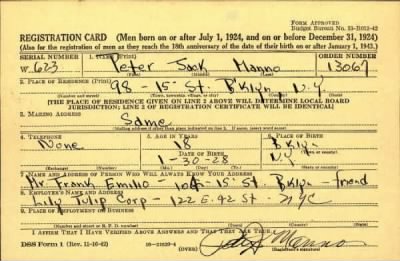 FORM APPROVED
Budget Bureau No. 33-R012-42
REGISTRATION CARD (Men born on or after July 1, 1924, and on or before December 31, 1924)
(Also for the registration of men as they reach the 18th anniversary of the date of their birth on or after January 1, 1943.)
SERIAL NUMBER 1. NAME (Print) ORDER NUMBER
W. 623 Peter Jack Manno 13069
(First) (Middle) (Last)
2. PLACE OF RESIDENCE (Print)
98 - 15 St. B'klyn, N.Y
[THE PLACE OF RESIDENCE GIVEN ON LINE 2 ABOVE WILL DETERMINE LOCAL BOARD
JURISDICTION; LINE 2 OF REGISTRATION CERTIFICATE WILL BE IDENTICAL]
3. MAILING ADDRESS
Same
[Mailing address if other than place indicated on line 2. If same, insert word same]
4. TELEPHONE 5. AGE IN YEARS 6. PLACE OF BIRTH
None 18 Bklyn
DATE OF BIRTH
1-30-28 N.Y
7. NAME AND ADDRESS OF PERSON WHO WILL ALWAYS KNOW YOUR ADDRESS
Mr. Frank Emilio - 15 St. Bklyn - friend
8. EMPLOYER'S NAME AND ADDRESS
Lily Tulip Corp - 122 E. 42 St - NYC
9. PLACE OF EMPLOYMENT OR BUSINESS
I AFFIRM THAT I HAVE VERIFIED ABOVE ANSWERS AND THAT THEY ARE TRUE.
DSS Form 1 (Rev. 11-16-42) (OVER) Manno
(Registrant's signature)